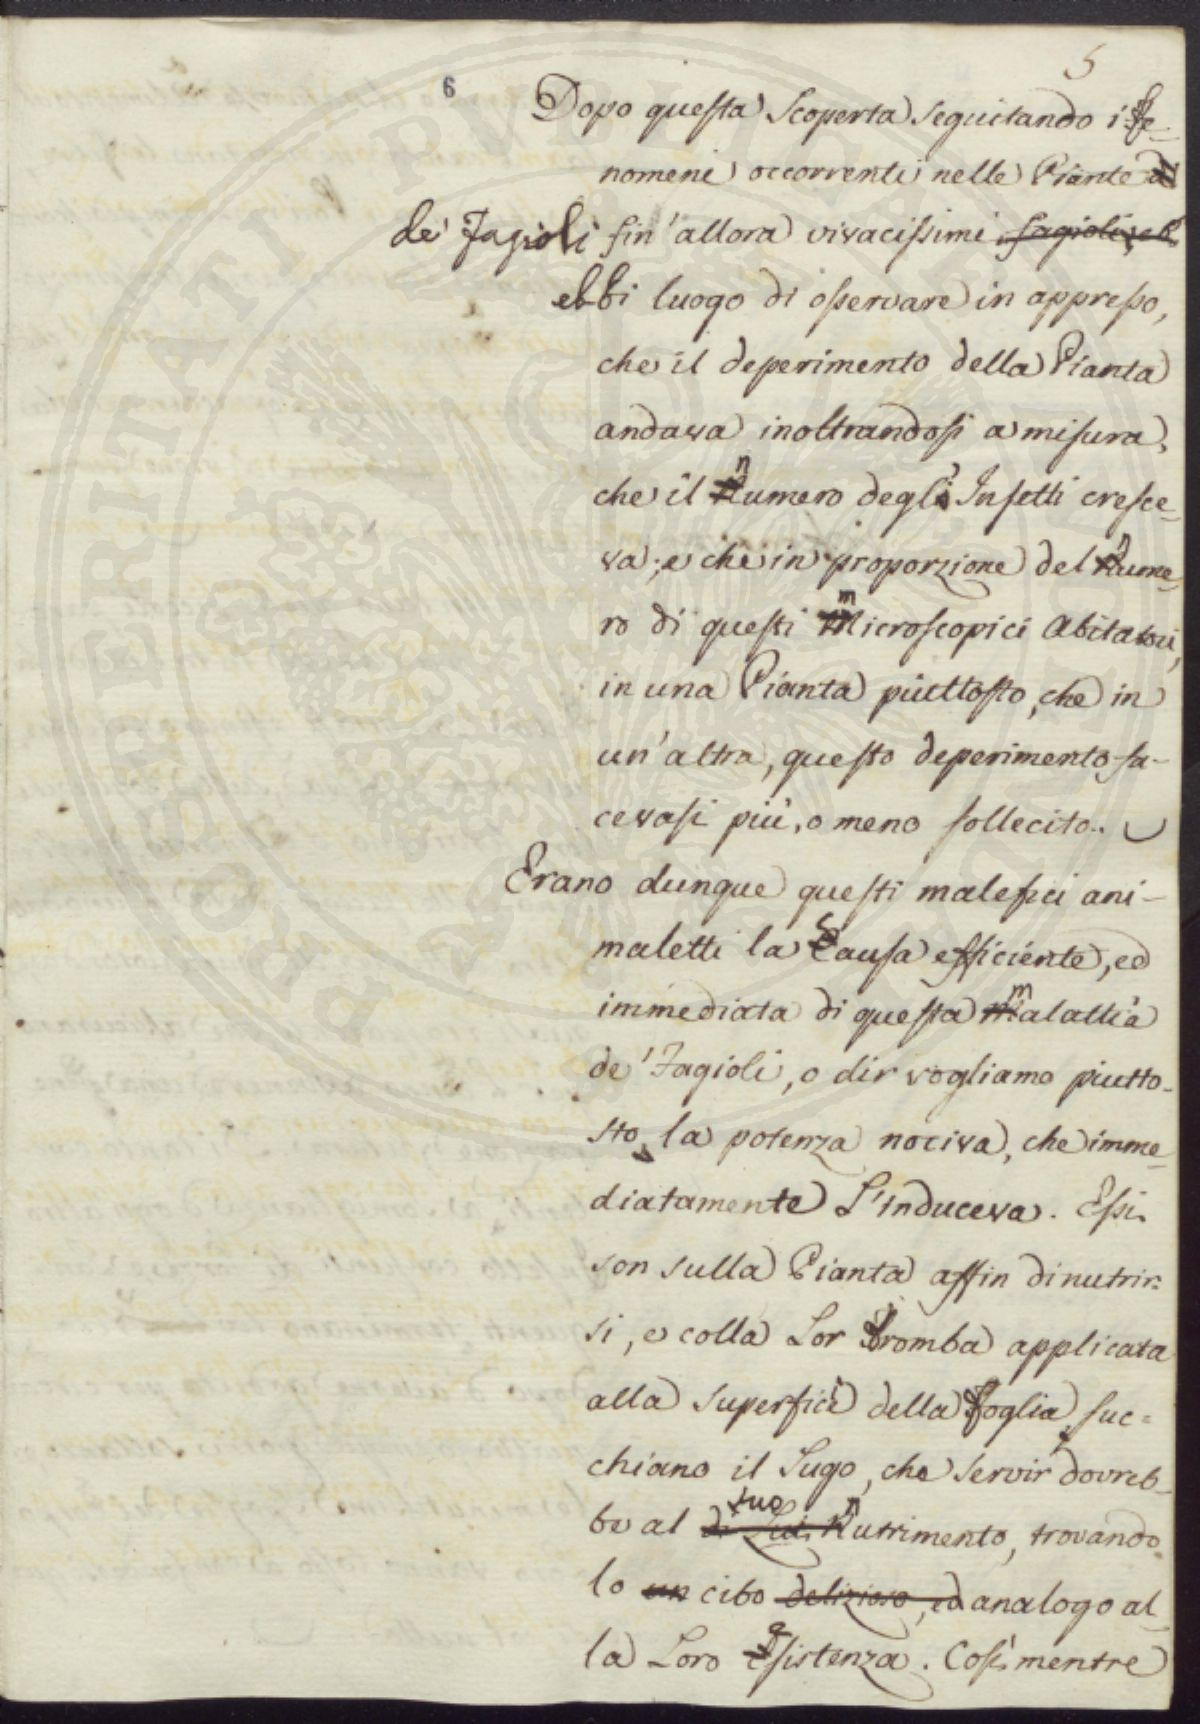 5
6
Dopo questa scoperta seguitando i fe-
nomeni occorrenti nelle Piante
de' Fagioli fin' allora vivacissimi fagioli, eb
ebbi luogo di osservare in appresso,
che il deperimento della Pianta
andava inoltrandosi a misura,
che il numero degl' Insetti cresce-
va; e che in proporzione del nume-
ro di questi microscopici Abitatori,
in una Pianta piuttosto, che in
un' altra, questo deperimento fa-
cevasi più, o meno sollecito.
Erano dunque questi malefici ani-
maletti la causa efficiente, ed
immediata di questa malattia
de' Fagioli, o dir vogliamo piutto-
sto, la potenza nociva, che imme-
diatamente l'induceva. Essi
son sulla Pianta affin di nutrir-
si, e colla Lor tromba applicata
alla superfice della foglia, suc-
chiano il Sugo, che servir dovreb-
be al di Lei suo nutrimento, trovando
lo un cibo delizioso, ed analogo al-
la Loro esistenza. Così mentre
PROSPERITATI PVBLICAE